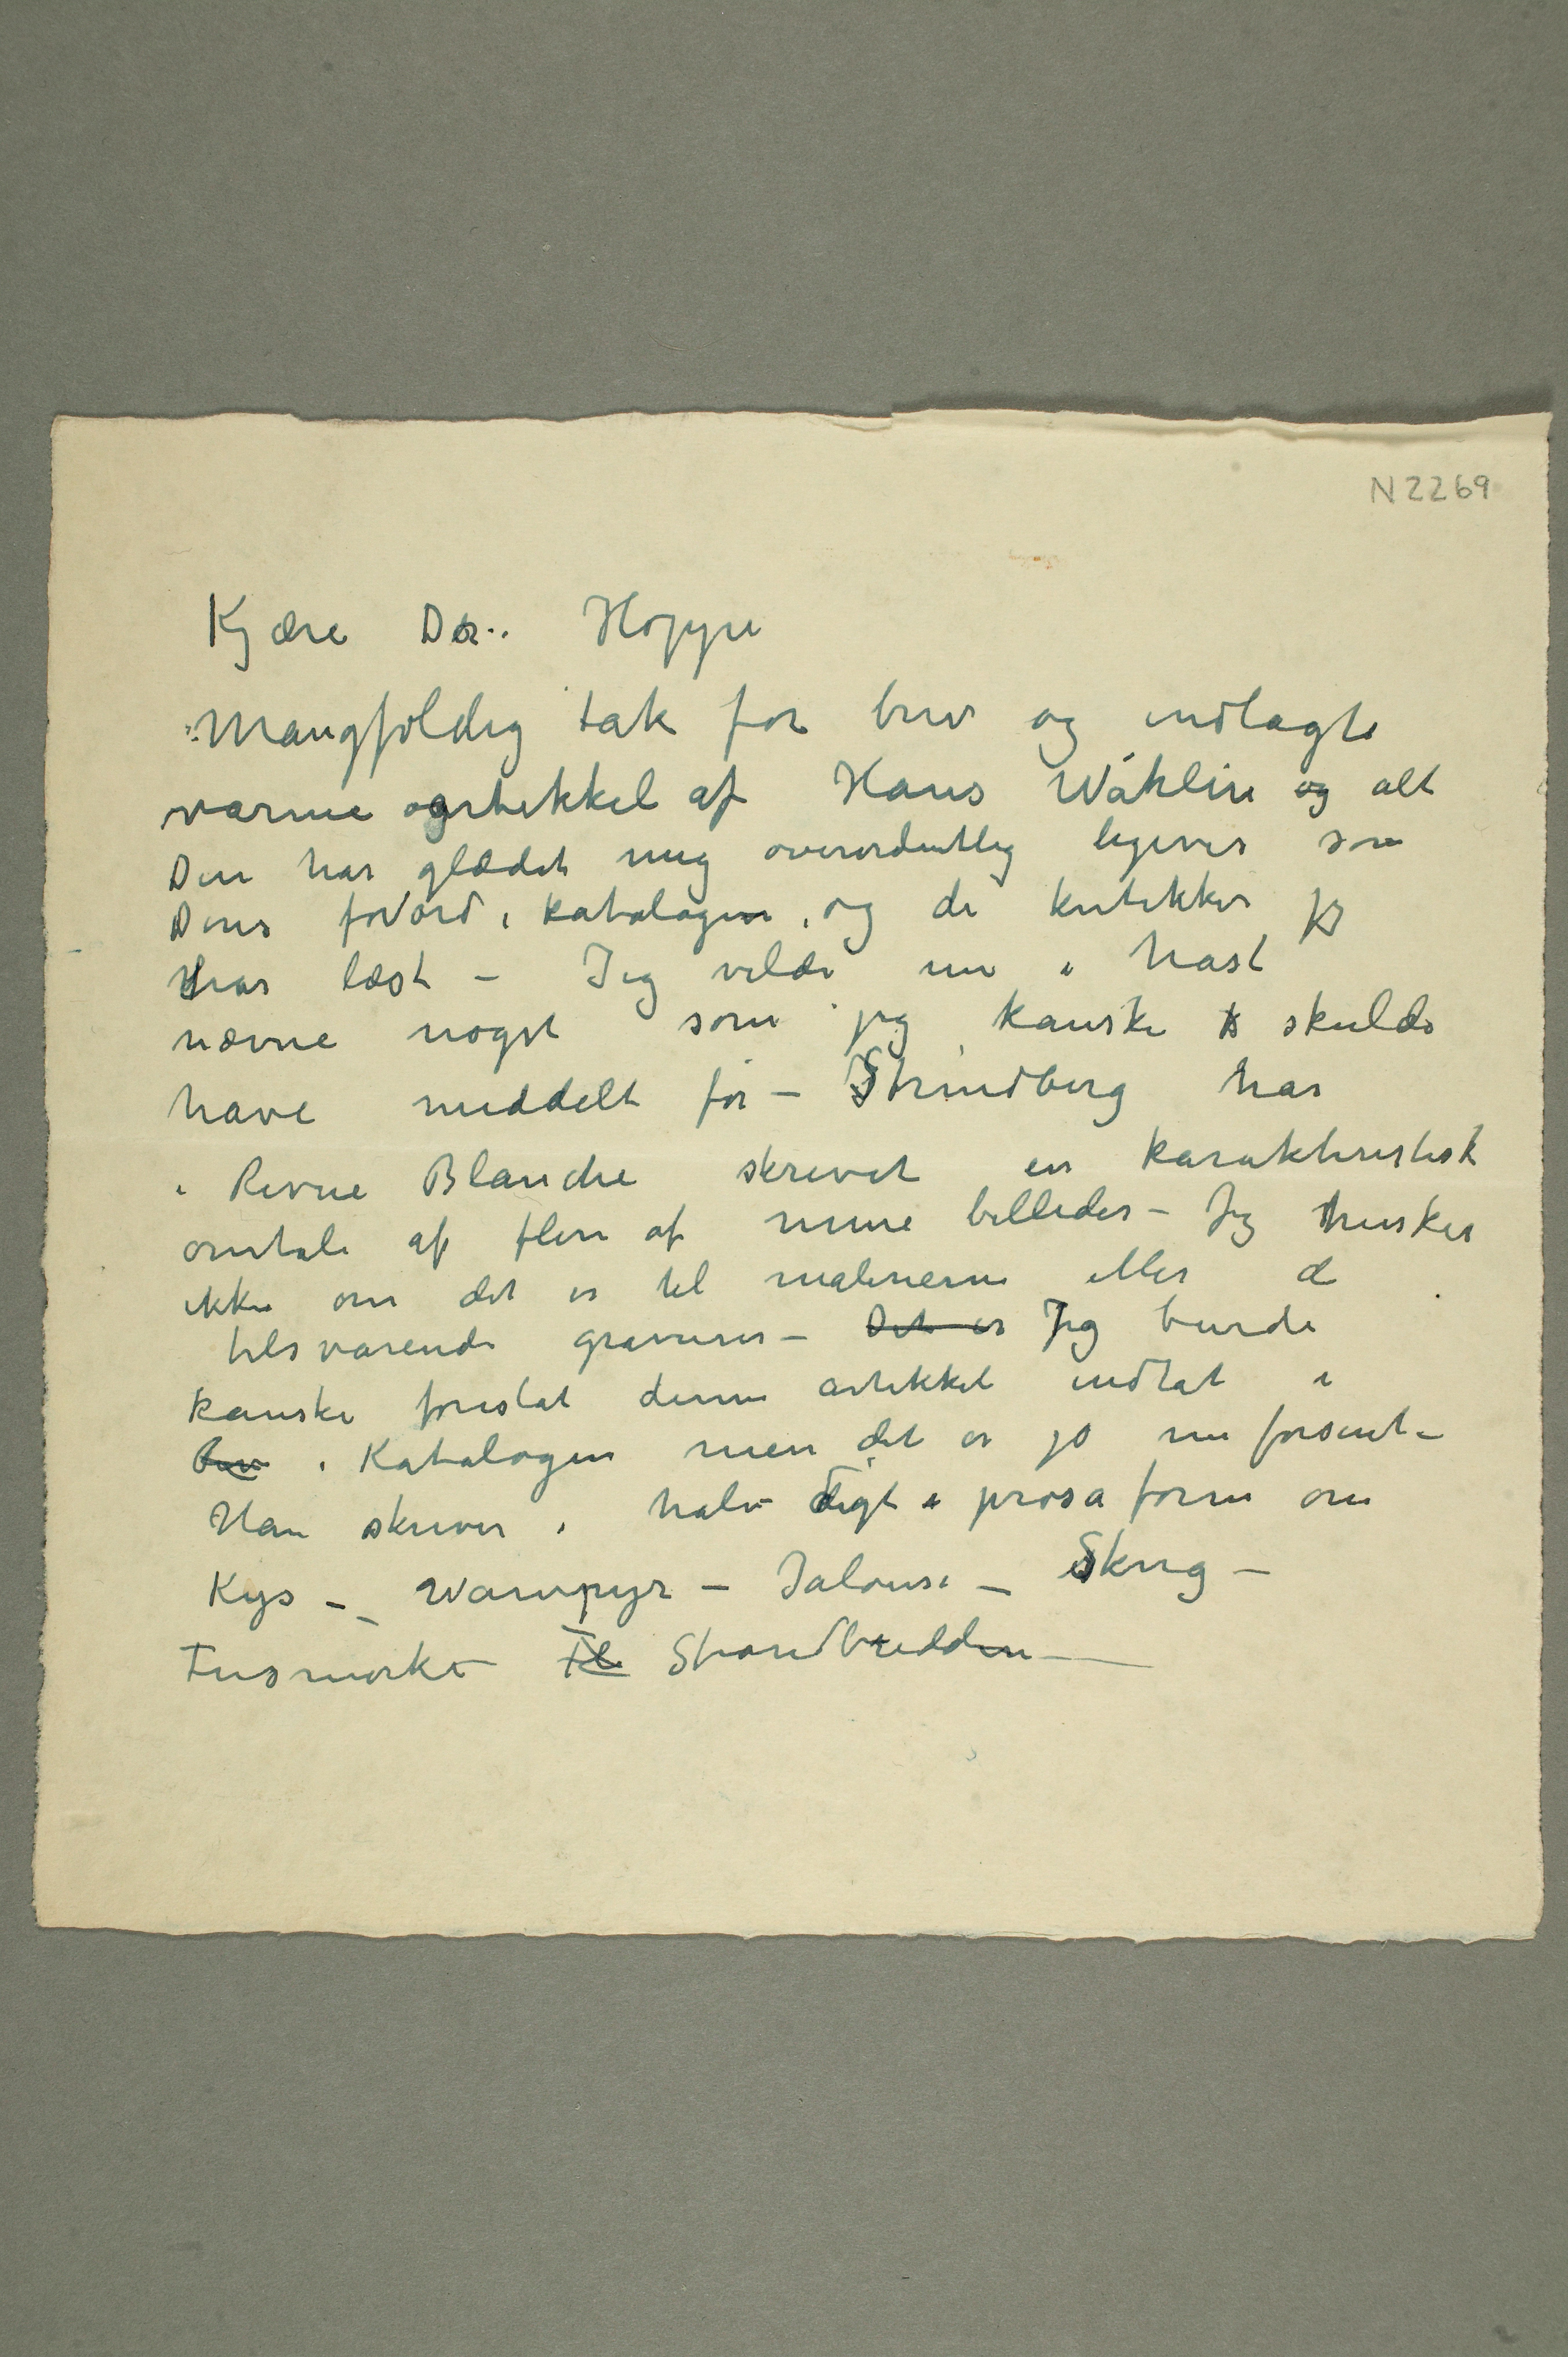 N 2269
Kjære Dr. Hoppe
Mangfoldig tak for brev og indlagte
varme artikkel af Hans Wåhlin og alt
Den har glædet mig overordentlig ligeves som
Deres forord i katalogen, og de kritikker jeg
har læst – Jeg vilde nu i hast
nævne noget som jeg kanske skulde
have meddelt før – Strindberg har
i Revue Blanche skrevet en karakteristisk
omtale af flere af mine billeder – Jeg husker
ikke om det er til malerierne eller de
tilsvarende gravurer – Det er Jeg burde
kanske foreslåt denne artikkel indtat i
brev i Katalogen men det er jo nu forsent –
Han skriver i halv digt i prosa form om
Kys – Wampyr – Jalousi – Skrig –
Tusmørke – Til Strandbredden –